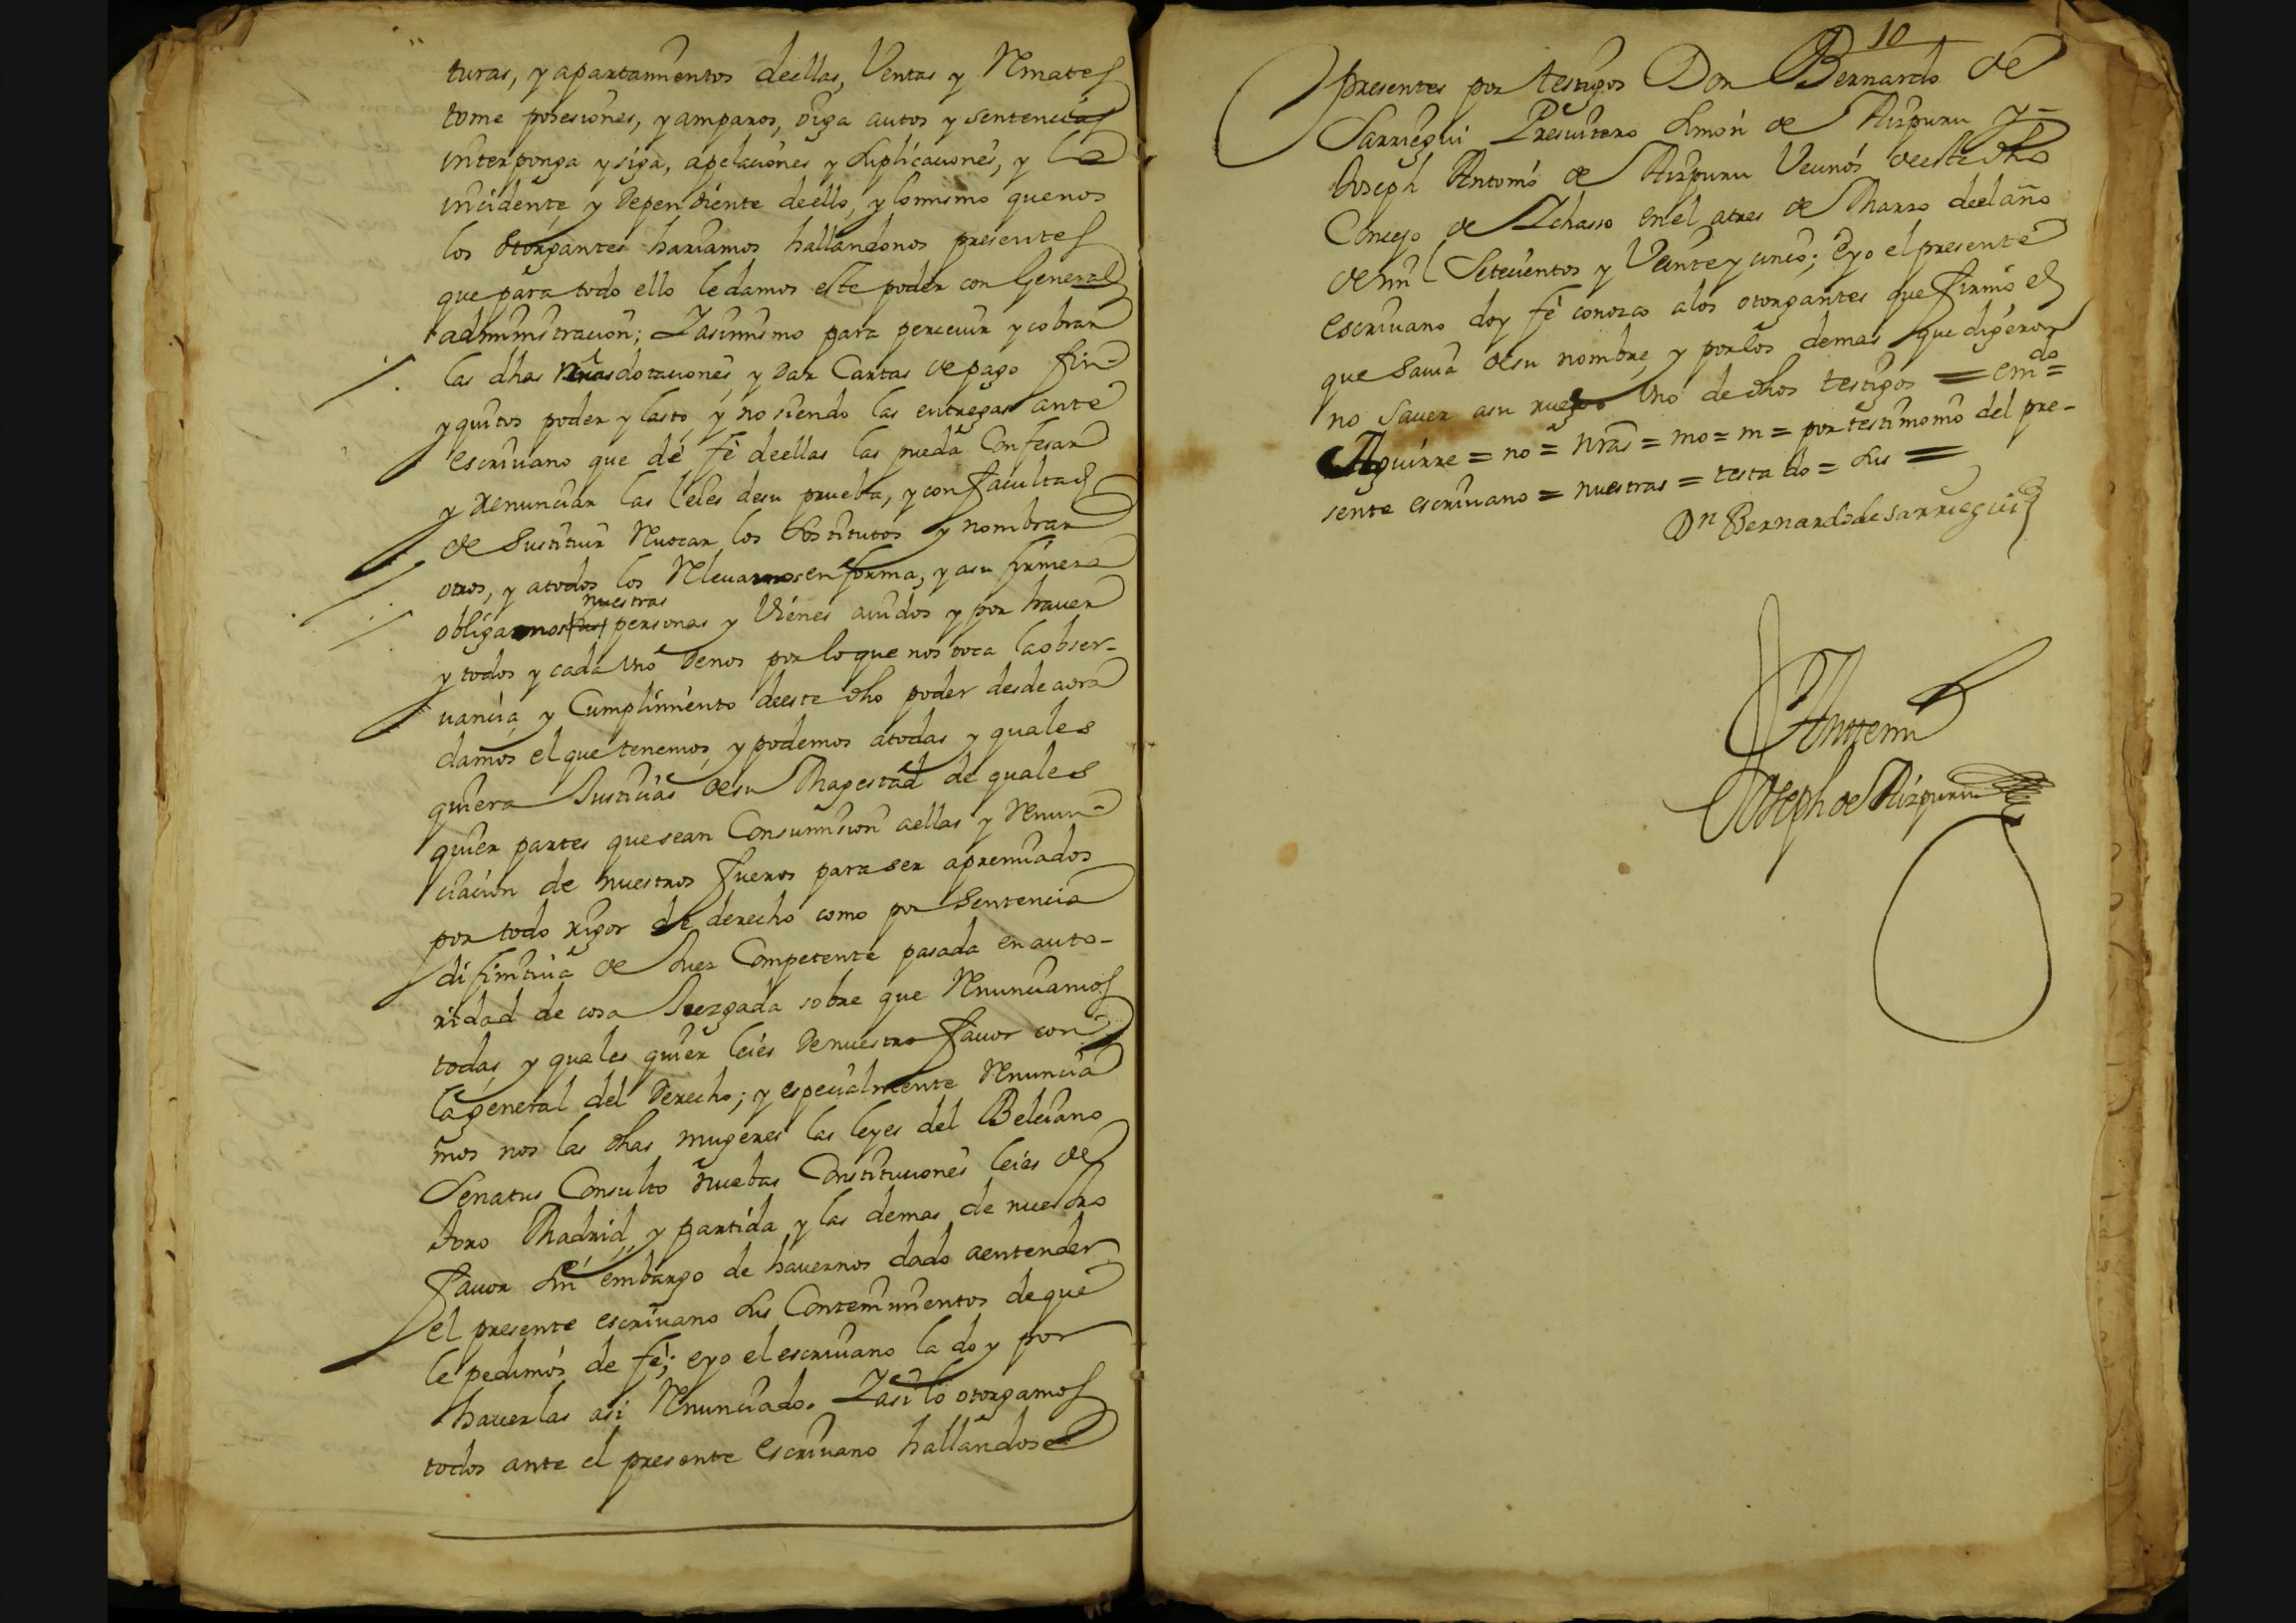 turas, y apartamientos deellas, Ventas y Remates
tome posesiones, y amparos, oiga autos y sentencias
interponga y siga, apelaciones y suplicaciones, y lo
incidente y dependiente deello, y lo mismo que nos
los otorgantes hariamos hallandonos presentes
que para todo ello le damos este poder con General
administracion; Y asimismo para perceuir y cobrar
las dhas nras dotaciones y dar Cartas de pago fin
y quitos poder y lasto, y no siendo las entregas ante
escriuano que dé fé deellas las pueda Confesar
y renunciar las leies desu prueba, y con facultad
de sustituir Reuocar los sostitutos y nombrar
otros, y atodos los Releuamos en forma, y asu firmeza
nuestras
obligamos sus personas y Vienes auidos y por hauer
y todos y cada uno denos por lo que nos toca la obser-
uancia y Cumplimiento deeste dho poder desde aora
damos el que tenemos, y podemos atodas y quales
quiera Justicias desu Magestad de quales
quier partes que sean Consumision aellas y Renun-
ciacion de nuestros fueros para ser apremiados
por todo rigor de derecho como por sentencia
difinitiua de Juez Competente pasada en auto-
ridad de cosa Juezgada sobre que Renunciamos
todas y quales quier leies de nuestro fauor con
la general del derecho; y especialmente Renuncia
mos nos las dhas mugeres las leyes del Beleiano
Senatus Consulto nuebas Constituciones leies de
toro Madrid, y partida y las demas de nuestro
fauor sin embargo de hauernos dado aentender
el presente escriuano sus Contenimientos de que
le pedimos de fé; e yo el escriuano la doy por
hauerlas asi Renunciado. Y asi lo otorgamos
todos ante el presente escriuano hallandose
10
presentes por testigos Don Bernardo de
Sarriegui Presuitero Simon de Aizpuru y
Joseph Antonio de Aizpuru Vecinos deeste dho
Concejo de Ichasso en el atres de Marzo deel año
de mil Setecientos y Veinte y cinco; e yo el presente
escriuano doy fé conozco alos otorgantes que firmó el
que sauia desu nombre, y por los demas que digeron
no sauer asu ruego uno de dhos testigos = em.do =
Aguirre = no = nras = mo = m = por testimonio del pre-
sente escriuano = nuestras = testado = sus =
Dn Bernardo de Sarriegui
Anttemi
Joseph de Aizpuru